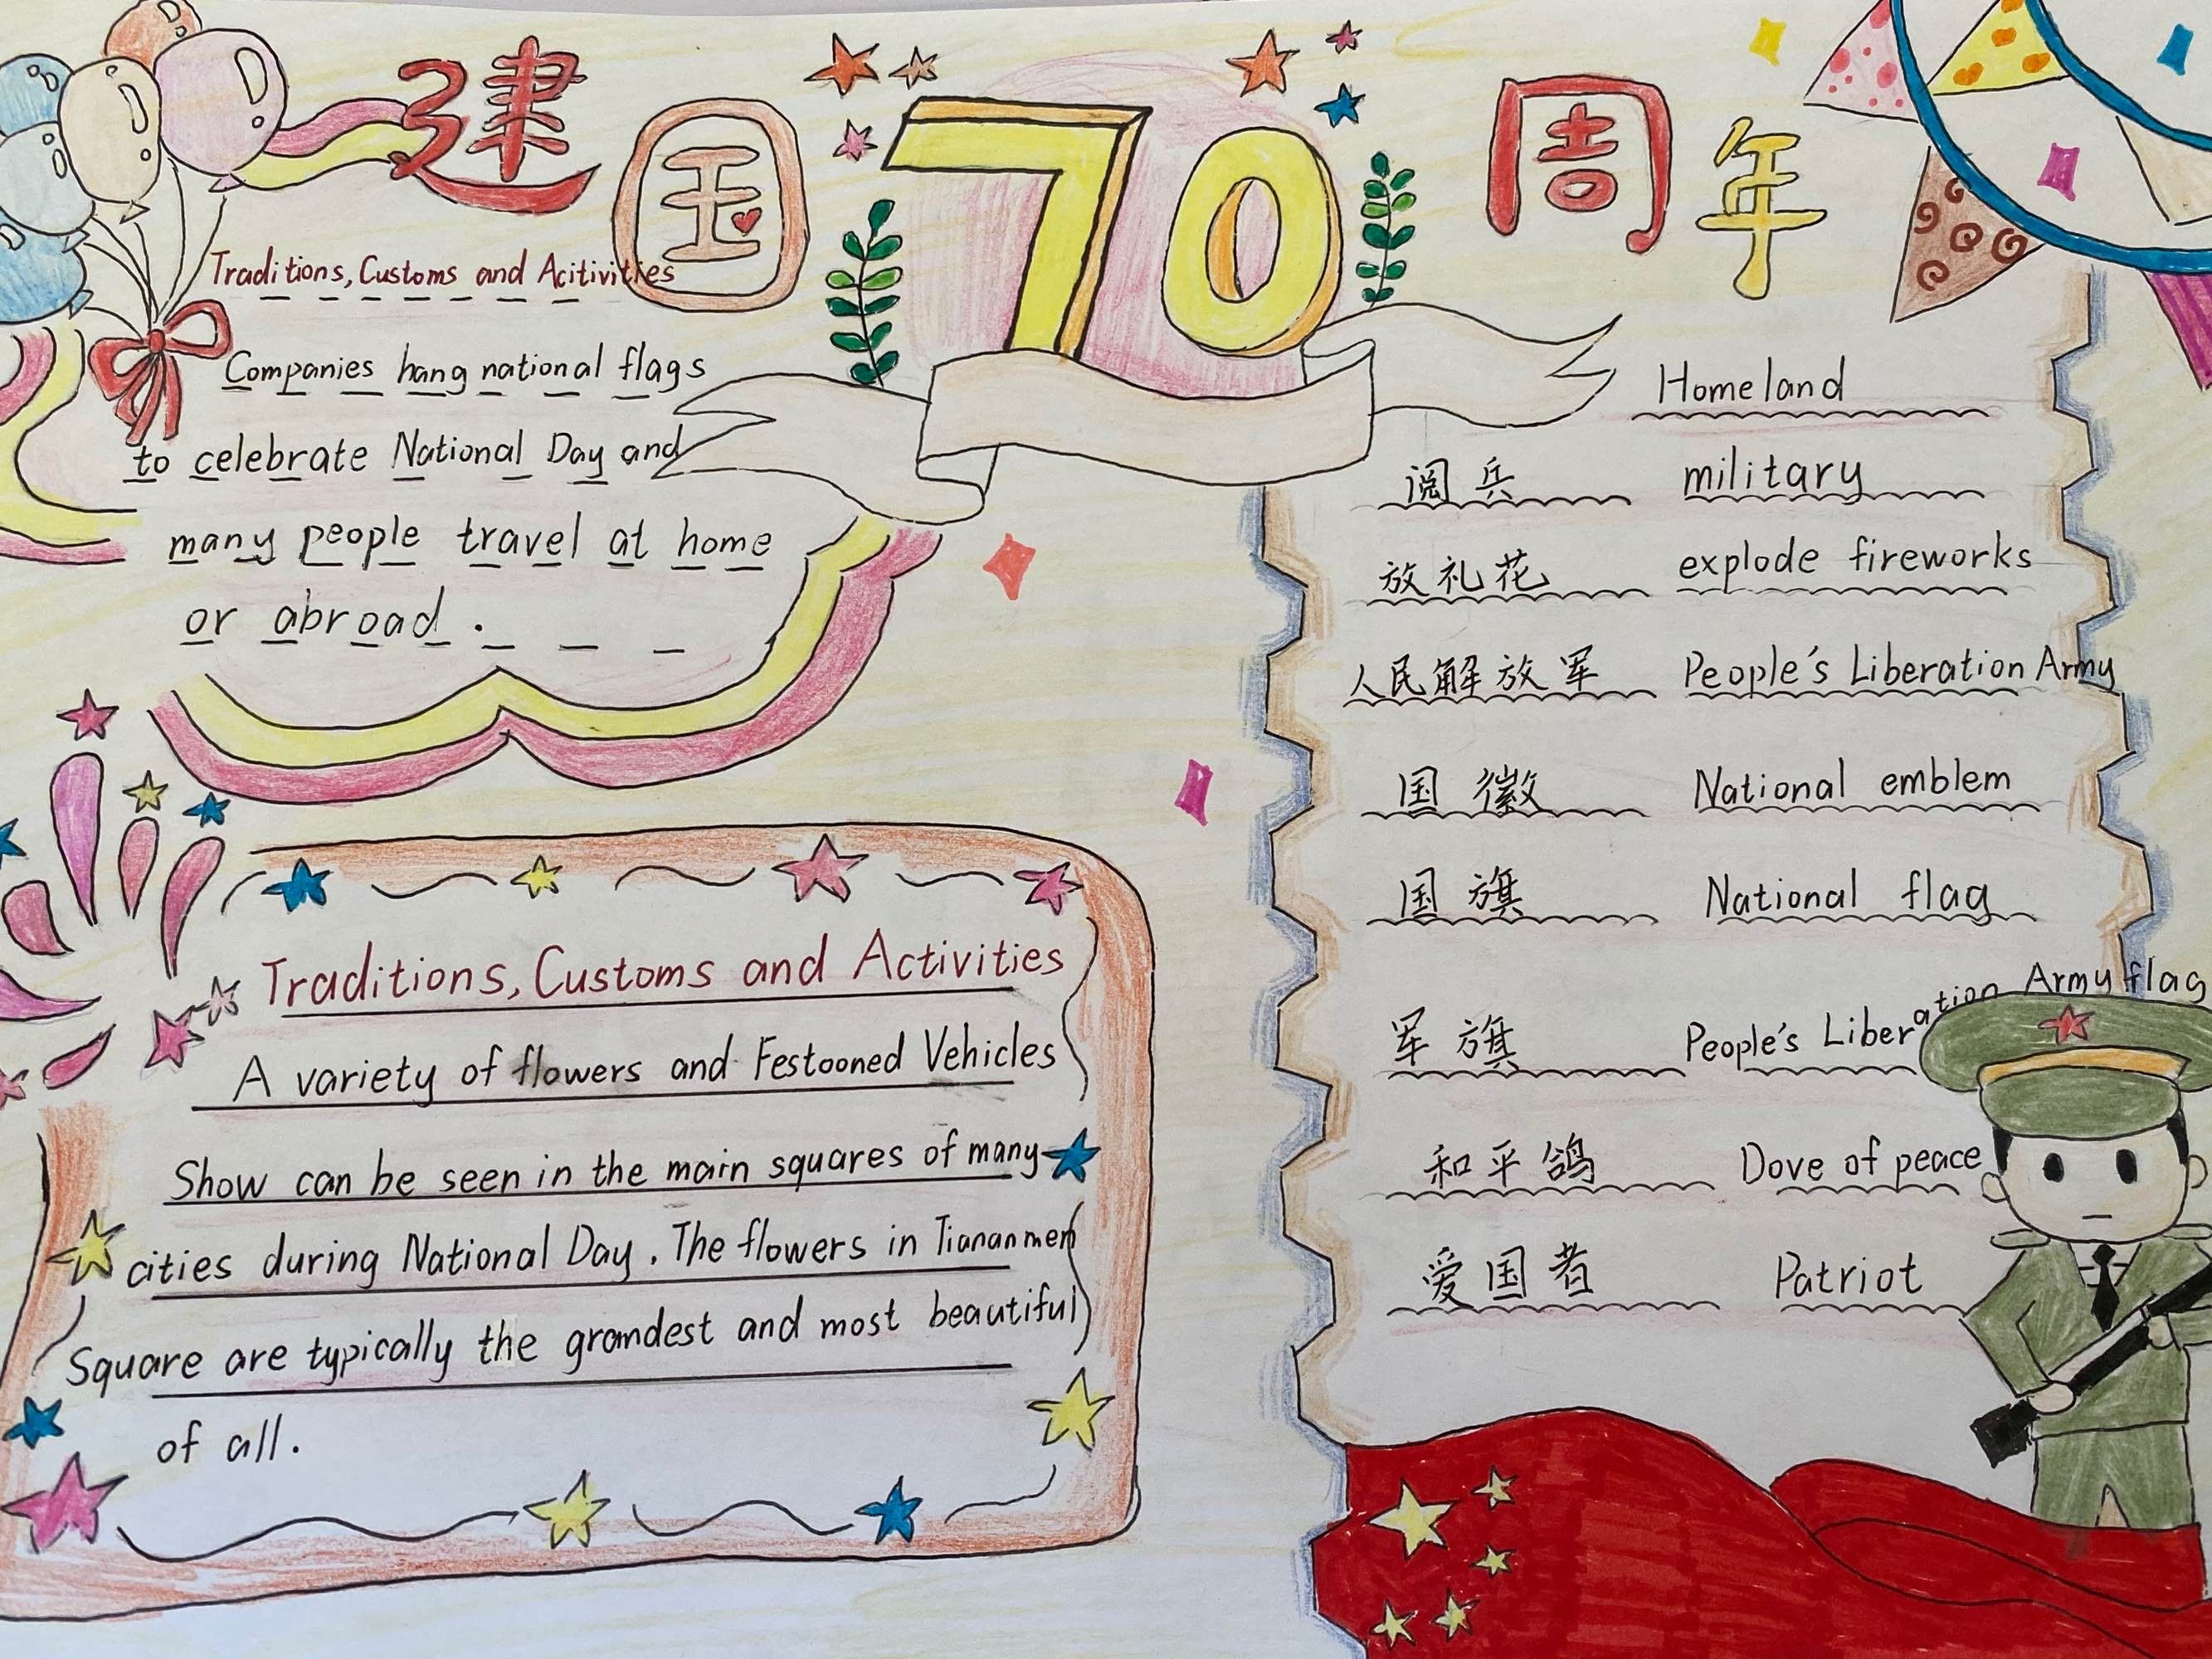 建国70周年
Traditions, Customs and Acitivities
Companies hang national flags
to celebrate National Day and
many people travel at home
or abroad.
Traditions, Customs and Activities
A variety of flowers and Festooned Vehicles
Show can be seen in the main squares of many
cities during National Day. The flowers in Tiananmen
Square are typically the grandest and most beautiful
of all.
Homeland
阅兵 military
放礼花 explode fireworks
人民解放军 People's Liberation Army
国徽 National emblem
国旗 National flag
军旗 People's Liberation Army flag
和平鸽 Dove of peace
爱国者 Patriot